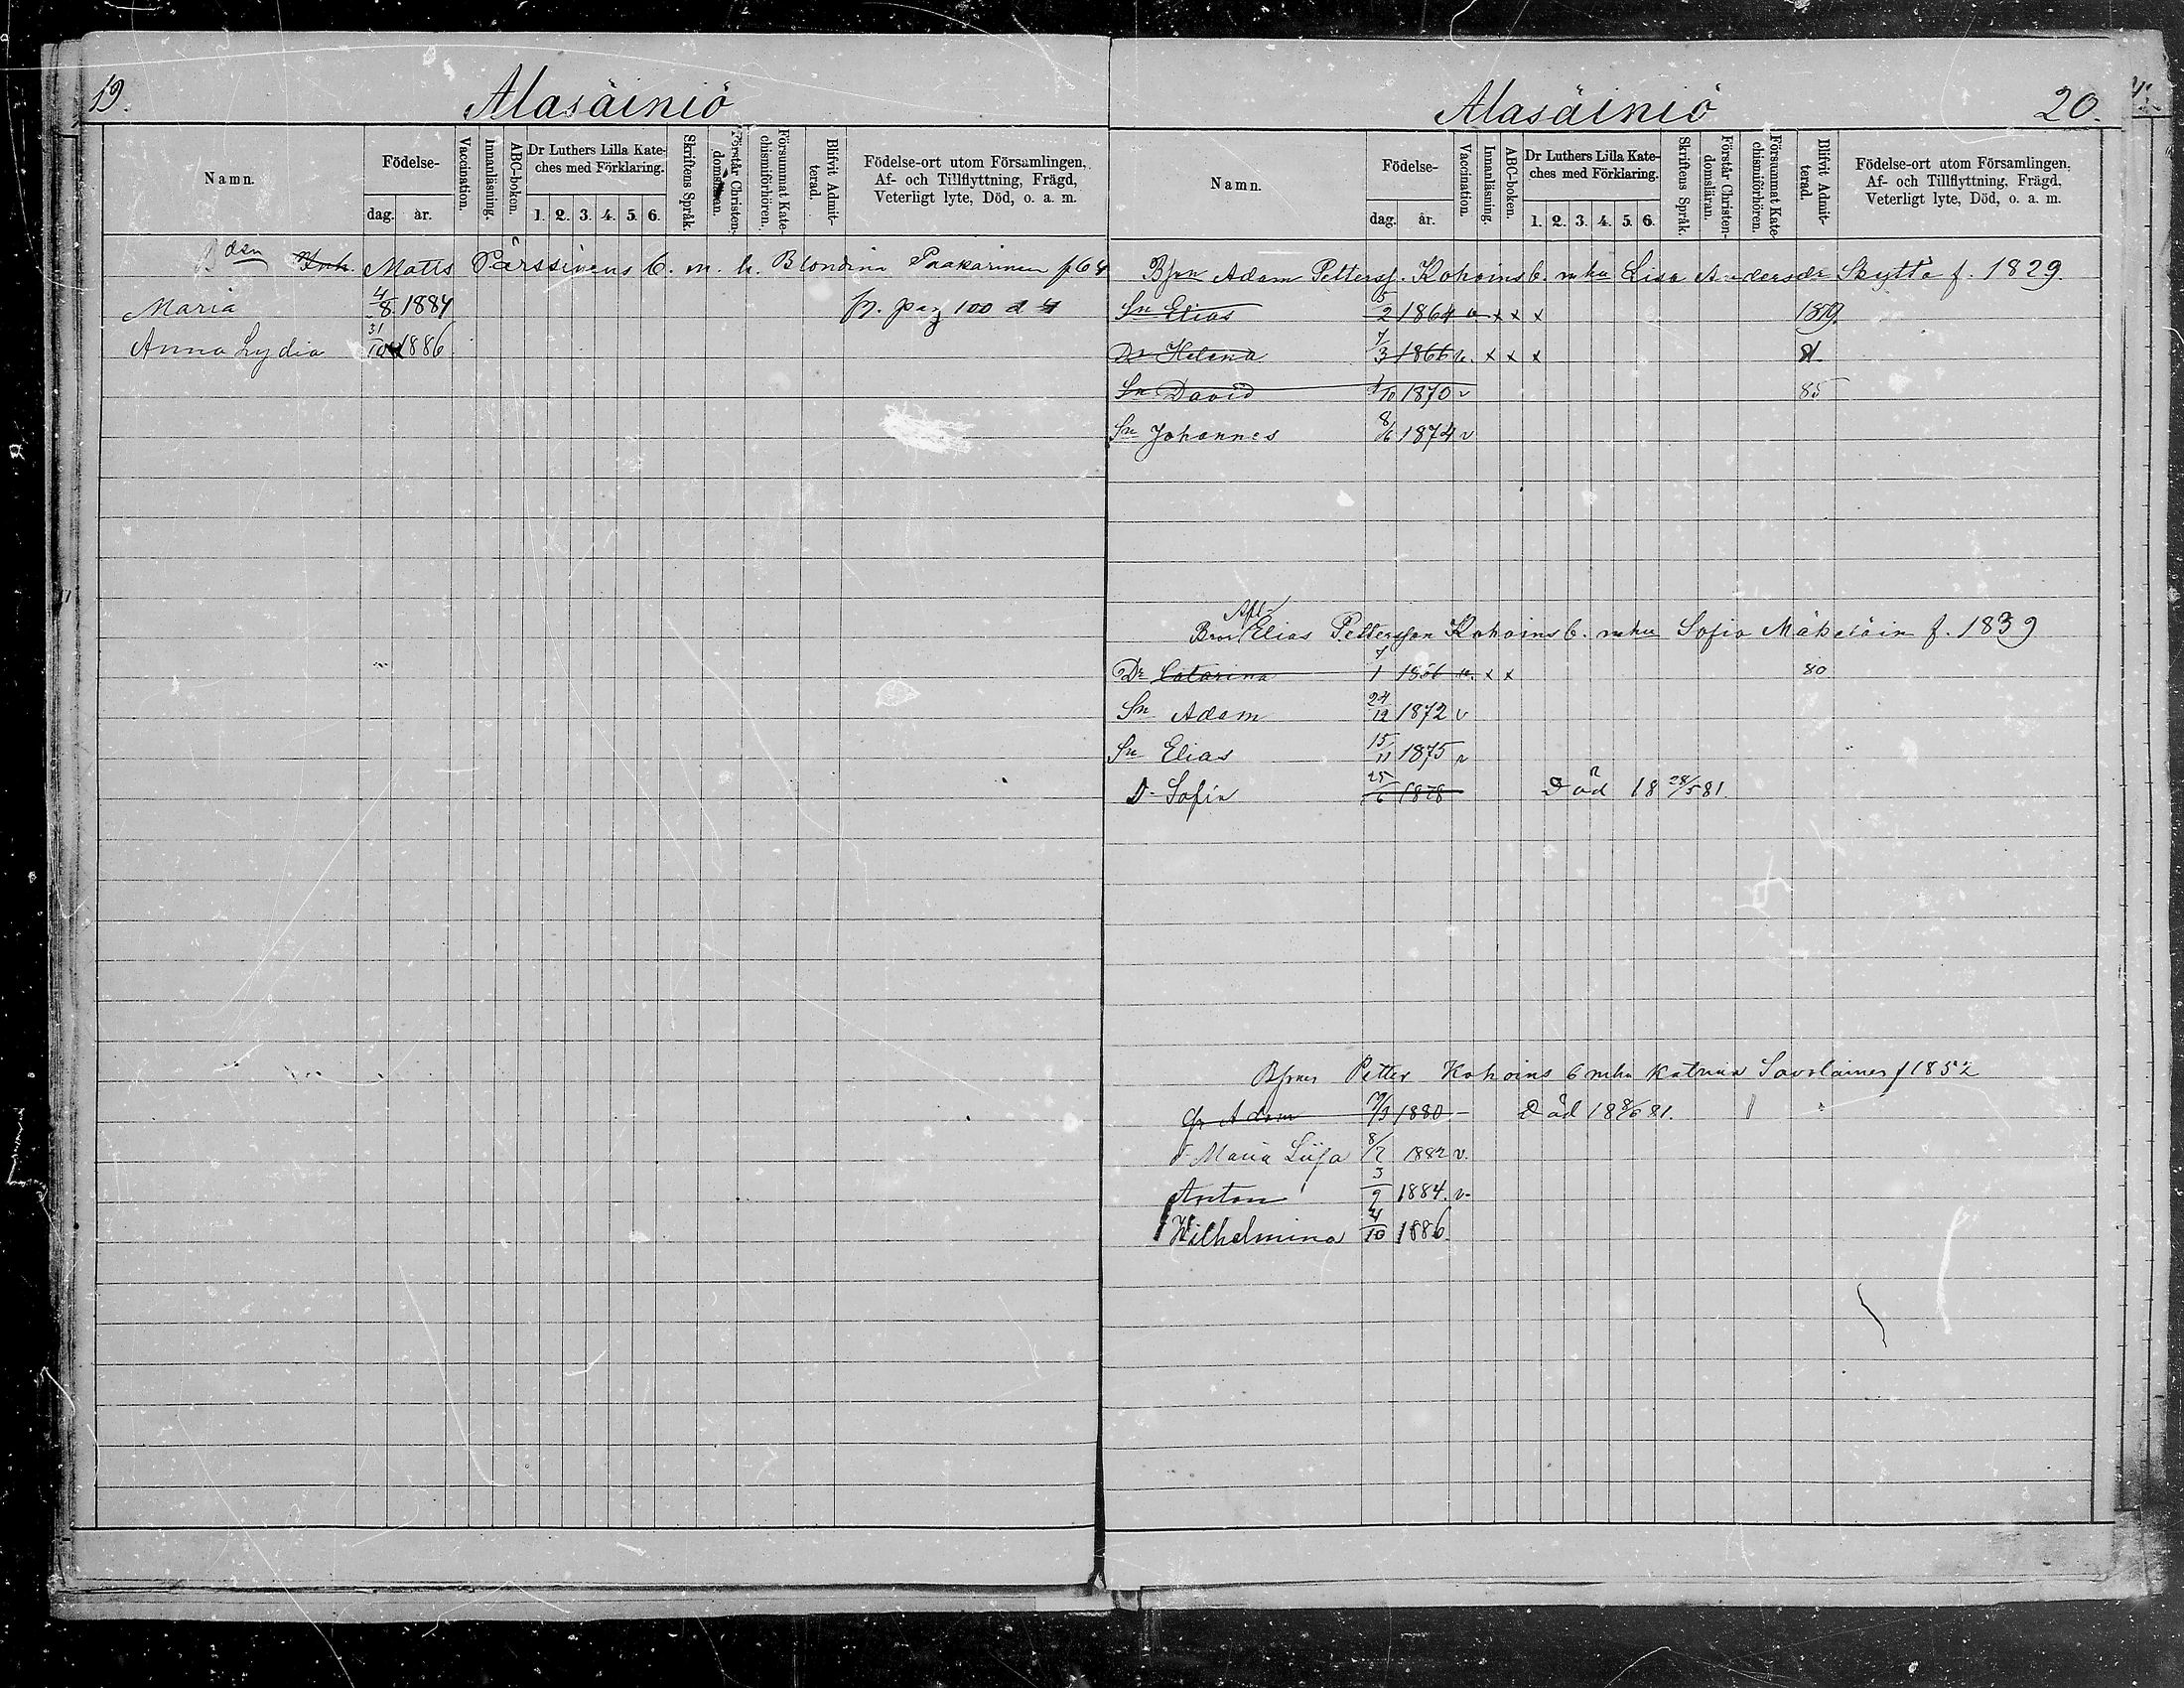 19.
Alasäiniö
Namn.
Födelse-
dag. år.
Vaccination.
Innanläsning.
ABC-boken.
Dr Luthers Lilla Kate-
ches med Förklaring.
1. 2. 3. 4. 5. 6.
Skriftens Språk.
Förstår Christen-
domsläran.
Försummat Kate-
chismiförhören.
Blifvit Admit-
terad.
Födelse-ort utom Församlingen.
Af- och Tillflyttning, Frägd,
Veterligt lyte, Död, o. a. m.
Matts Pärssinens b. m. h. Blondina Paakarinen f. 64
Maria 4/8 1884 fr. pag 100
Anna Lydia 31/10 1886
Alasäiniö
20.
Namn.
Födelse-
dag. år.
Vaccination.
Innanläsning.
ABC-boken.
Dr Luthers Lilla Kate-
ches med Förklaring.
1. 2. 3. 4. 5. 6.
Skriftens Språk.
Förstår Christen-
domsläran.
Försummat Kate-
chismiförhören.
Blifvit Admit-
terad.
Födelse-ort utom Församlingen.
Af- och Tillflyttning, Frägd,
Veterligt lyte, Död, o. a. m.
Adam Petterss. Kohoins b. mhu Lisa Andersdr Skyttä f. 1829.
Sn Elias 5/2 1864 v. x x x 1879.
Dr Helena 7/3 1866 v. x x x 81.
Sn David 1/10 1870 v 85
Sn Johannes 8/6 1874 v
Afl.
Bror Elias Pettersson Kohoins b. mhu Sofia f. 1839
Dr Catarina 7/1 1866 v. x x 80
Sn Adam 24/12 1872 v
Sn Elias 15/11 1875 v
D Sofia 25/6 1878 Död 18 28/5 81.
Petter Kohoins b mhu Katrina Savolainen f 1852
Adam 1880 Död 18 8/6 81.
Maria Liisa 8/2 1882 v.
Anton 3/9 1884. v.
Wilhelmina 4/10 1886.